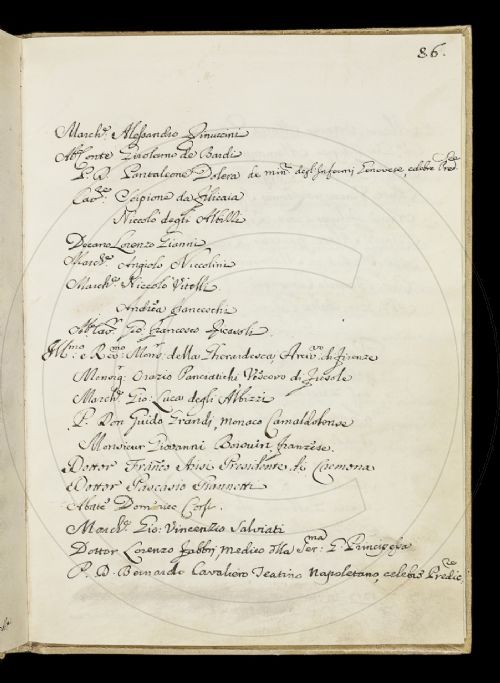 86.
March.e Alessandro Rinuccini
Ab. Conte Girolamo de Bardi
P. D. Pantaleone Dolera de min.ri degl'Infermi Genovese, celebre Pred.re
Cav.re Scipione da Filicaia
Niccolò degli Albizzi
Decano Lorenzo Gianni
March.e Angiolo Niccolini
March.e Niccolò Vitelli
Andrea Franceschi
Cav.re Gio: Francesco Ricasoli
Ill.mo e Rev.mo Mons.r della Gherardesca Arciv.vo di Firenze
Monsig.r Orazio Panciatichi Vescovo di Fiesole
March.e Gio: Luca degli Albizzi
P. Don Guido Grandi, monaco Camaldolense
Monsieur Giovanni Franzese
Dottor Franco Arisi Presidente di Cremona
Dottor Pascasio Giannetti
Abate Domenico Corsi
March.e Gio: Vincenzio Salviati
Dottor Lorenzo Fabbri medico della Ser.ma G. Principessa
P. D. Bernardo Cavaliero Teatino Napoletano, celebre Predic.re